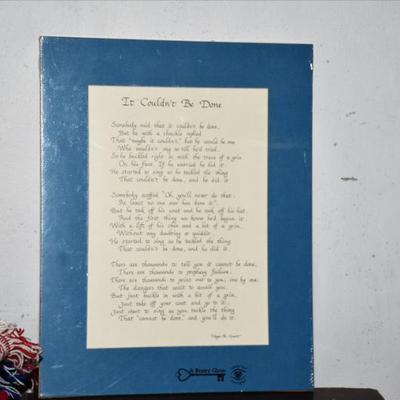 It Couldn't Be Done
Somebody said that it couldn't be done,
But he with a chuckle replied
That "maybe it couldn't," but he would be one
Who wouldn't say so till he'd tried.
So he buckled right in with the trace of a grin
On his face. If he worried he hid it.
He started to sing as he tackled the thing
That couldn't be done, and he did it.
Somebody scoffed: "Oh, you'll never do that;
At least no one ever has done it";
But he took off his coat and he took off his hat,
And the first thing we knew he'd begun it.
With a lift of his chin and a bit of a grin,
Without any doubting or quiddit,
He started to sing as he tackled the thing
That couldn't be done, and he did it.
There are thousands to tell you it cannot be done,
There are thousands to prophesy failure;
There are thousands to point out to you, one by one,
The dangers that wait to assail you.
But just buckle in with a bit of a grin,
Just take off your coat and go to it;
Just start to sing as you tackle the thing
That "cannot be done," and you'll do it.
Edgar A. Guest